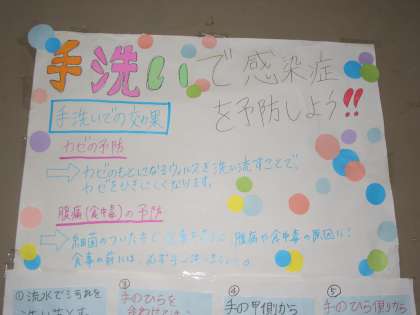 手洗いで感染症
を予防しよう!!
手洗いでの効果
カゼの予防
⇨カゼのもとになるウィルスを洗い流すことで、
カゼをひきにくくなります。
腹痛(食中毒)の予防
⇨細菌のついた手で食事をすると 腹痛や食中毒の原因に!
食事の前には、必ず手洗いを
①流水で汚れを
③
手のひらを
④
手の甲側から
⑤
手のひら側から